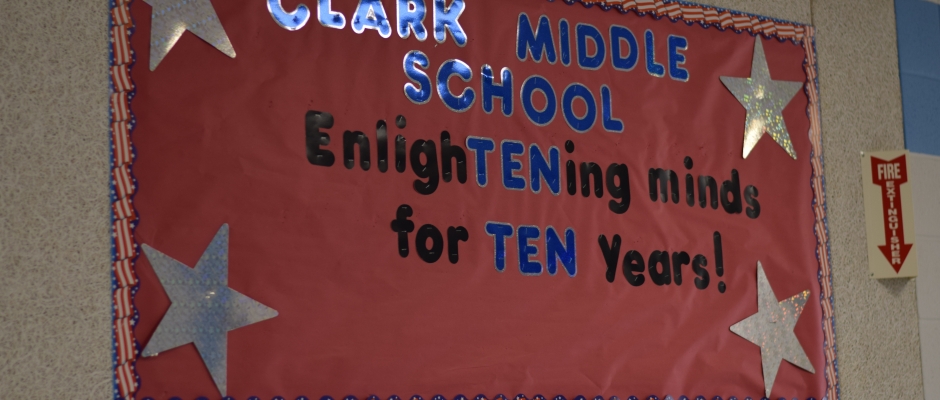 CLARK MIDDLE
SCHOOL
EnlighTENing minds
for TEN Years!
FIRE
EXTINGUISHER